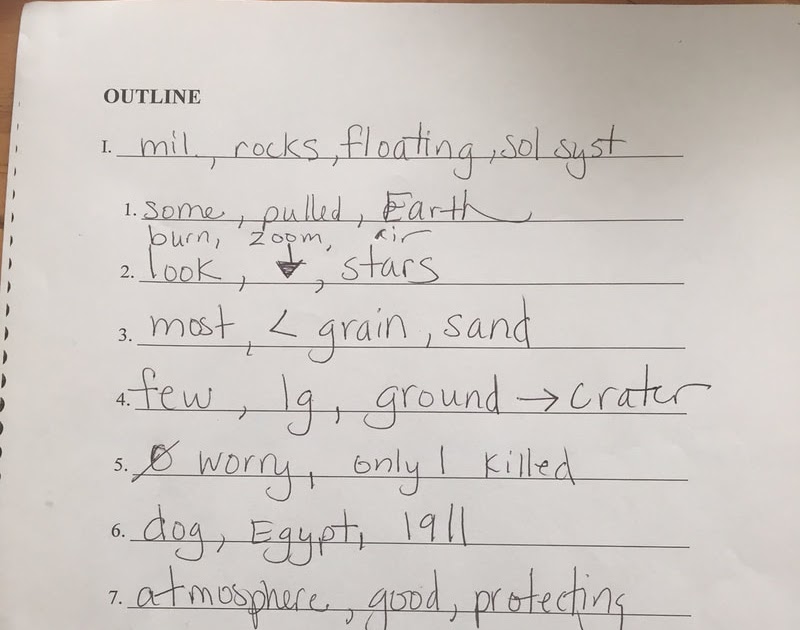 OUTLINE
I. mil., rocks, floating, sol syst
1. some, pulled, Earth
burn, zoom, air
2. look, ↓, stars
3. most, < grain, sand
4. few, lg, ground → crater
5. Ø worry, only 1 killed
6. dog, Egypt, 1911
7. atmosphere, good, protecting